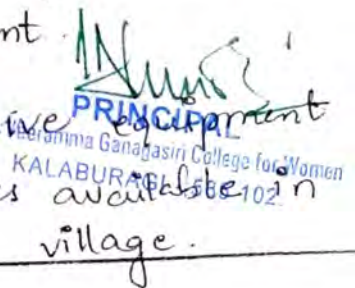 nt.
ive equipment
PRINCIPAL
Veeramma Gangasiri College for Women
KALABURAGI - 585 102.
s available in
village.